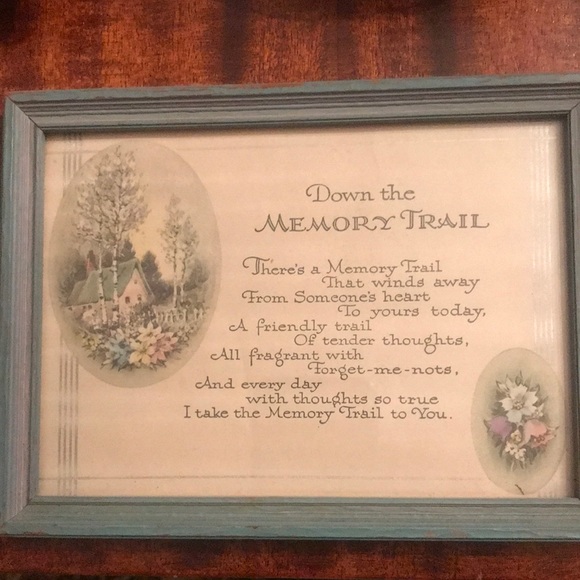 Down the
MEMORY TRAIL
There's a Memory Trail
That winds away
From Someone's heart
To yours today,
A friendly trail
Of tender thoughts,
All fragrant with
Forget-me-nots,
And every day
with thoughts so true
I take the Memory Trail to You.